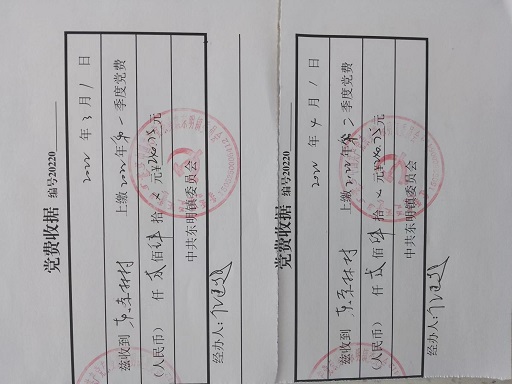 党费收据 编号20220
2022 年 3 月 1 日
兹收到 东李林村 上缴2022年第一季度党费
（人民币） 仟 贰 佰 肆 拾 元
中共东明镇委员会
经办人：
党费收据 编号20220
2022 年 4 月 1 日
兹收到 东李林村 上缴2022年第二季度党费
（人民币） 仟 贰 佰 肆 拾 元
中共东明镇委员会
经办人：